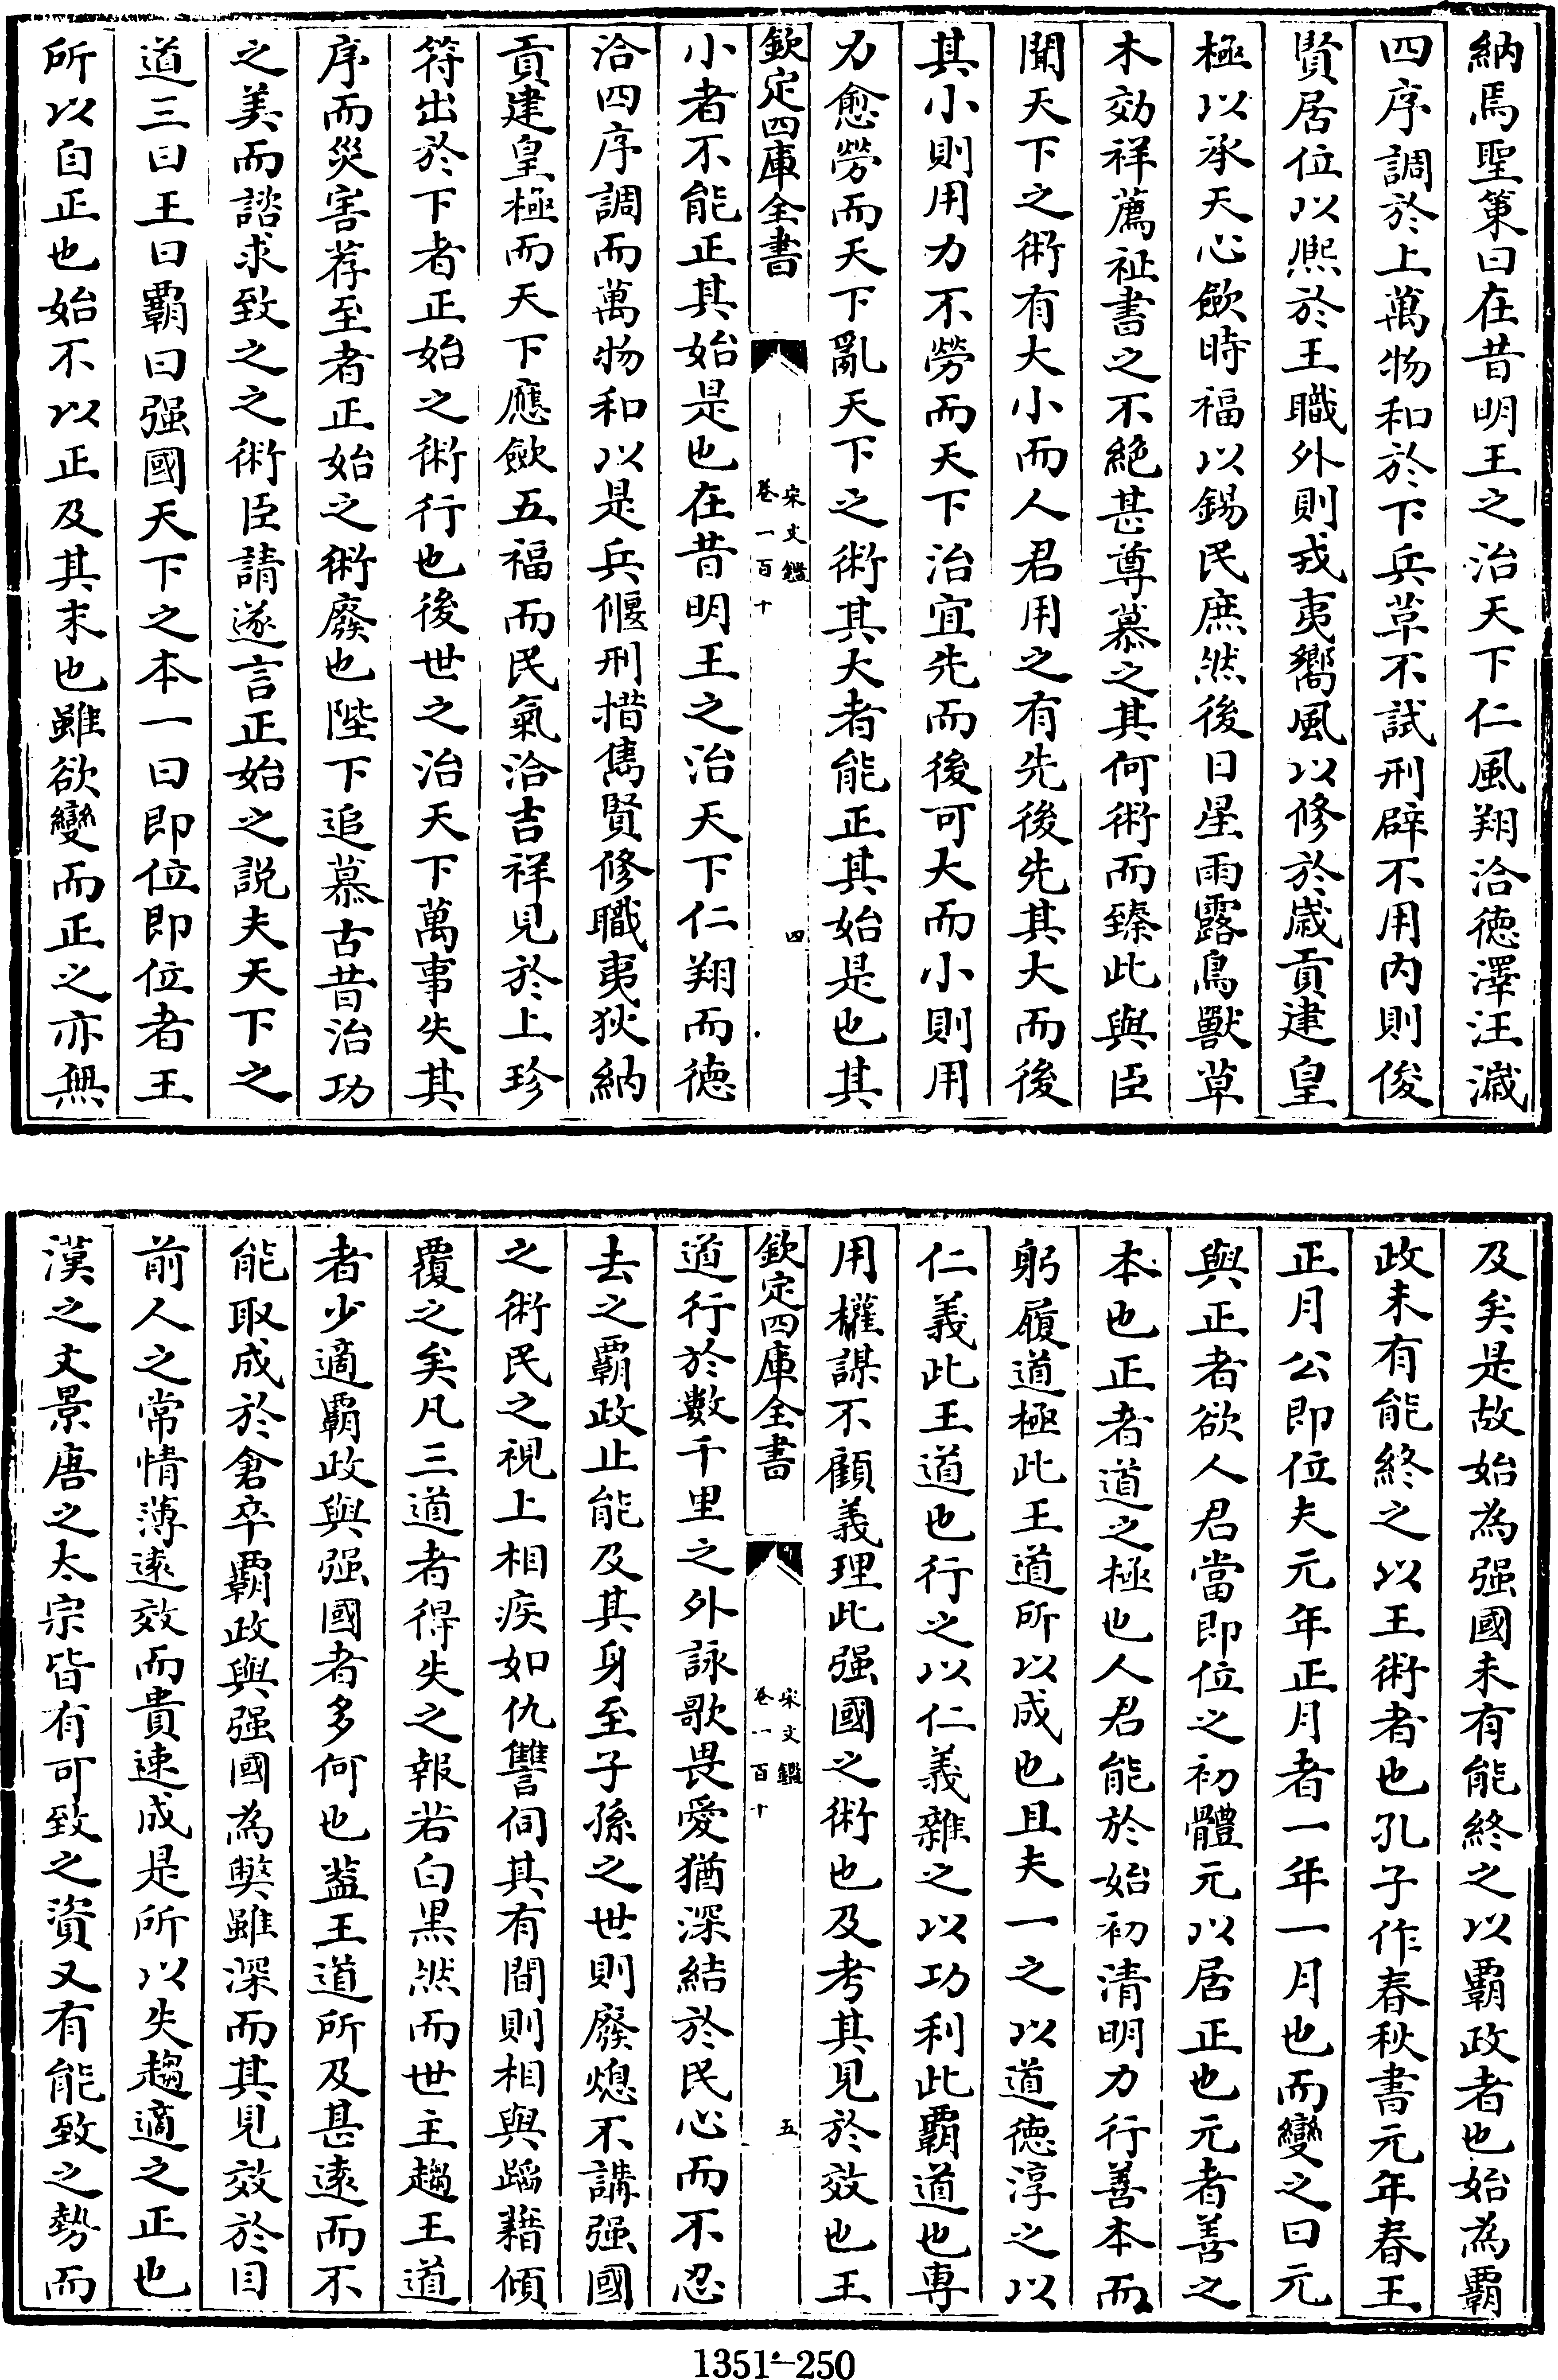 納焉聖策曰在昔明王之治天下仁風翔洽德澤汪濊
四序調於上萬物和於下兵革不試刑辟不用内則俊
賢居位以熈於王職外則戎夷嚮風以修於嵗貢建皇
極以承天心歛時福以錫民庶然後日星雨露鳥獸草
木効祥薦祉書之不絶甚尊慕之其何術而臻此與臣
聞天下之術有大小而人君用之有先後先其大而後
其小則用力不勞而天下治宜先而後可大而小則用
力愈勞而天下亂天下之術其大者能正其始是也其
欽定四庫全書
宋文鑑
卷一百十
四
小者不能正其始是也在昔明王之治天下仁翔而德
洽四序調而萬物和以是兵偃刑措雋賢修職夷狄納
貢建皇極而天下應歛五福而民氣洽吉祥見於上珍
符出於下者正始之術行也後世之治天下萬事失其
序而災害荐至者正始之術廢也陛下追慕古昔治功
之美而諮求致之之術臣請遂言正始之說夫天下之
道三曰王曰覇曰强國天下之本一曰即位即位者王
所以自正也始不以正及其末也雖欲變而正之亦無
及矣是故始為强國未有能終之以覇政者也始為覇
政未有能終之以王術者也孔子作春秋書元年春王
正月公即位夫元年正月者一年一月也而變之曰元
與正者欲人君當即位之初體元以居正也元者善之
本也正者道之極也人君能於始初清明力行善本而
躬履道極此王道所以成也且夫一之以道德淳之以
仁義此王道也行之以仁義雜之以功利此覇道也専
用權謀不顧義理此强國之術也及考其見於效也王
欽定四庫全書
宋文鑑
卷一百十
五
道行於數千里之外詠歌畏愛猶深結於民心而不忍
去之覇政止能及其身至子孫之世則廢熄不講强國
之術民之視上相疾如仇讐伺其有間則相與蹈藉傾
覆之矣凡三道者得失之報若白黑然而世主趨王道
者少適覇政與强國者多何也葢王道所及甚遠而不
能取成於倉卒覇政與强國為獘雖深而其見效於目
前人之常情薄遠效而貴速成是所以失趨適之正也
漢之文景唐之太宗皆有可致之資又有能致之勢而
1351-250